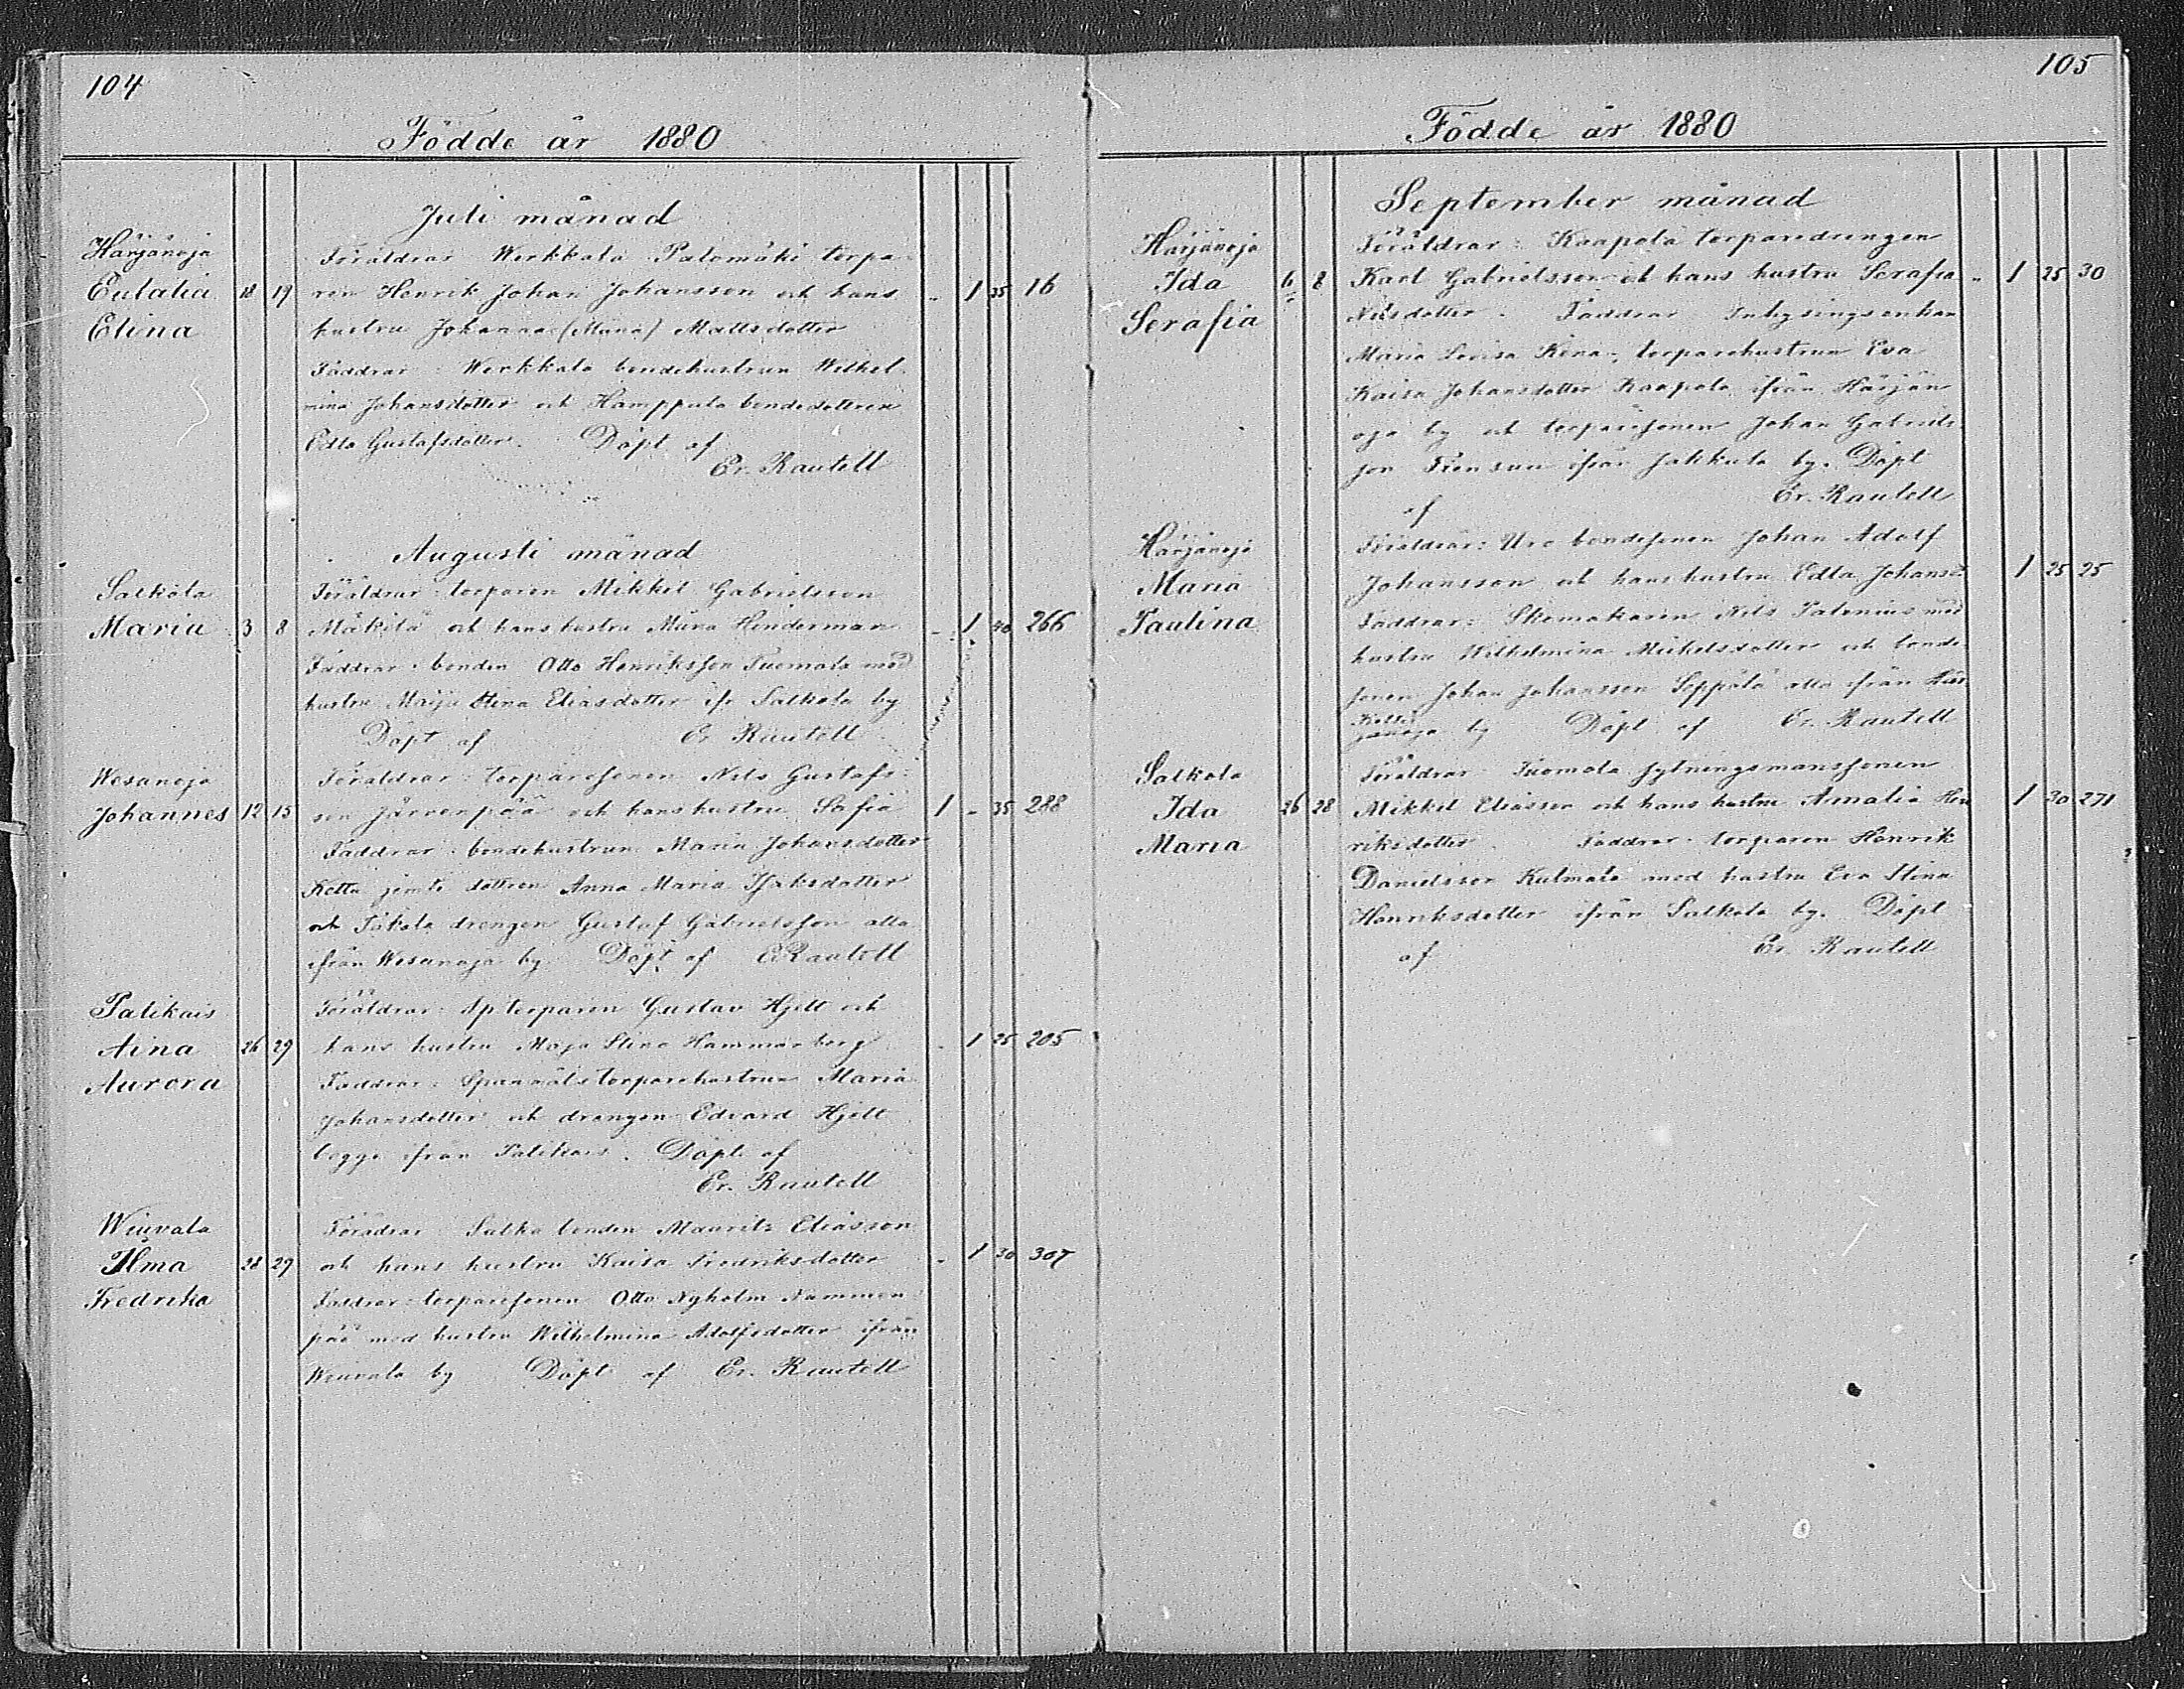 104
Födde år 1880
Juli månad
Härjänoja
Föräldrar Werkkala Palomäki torpa-
Eulalia 18 19 ren Henrik Johan Johansson och hans " 1 35 16
Elina
hustru Johanna (Mana) Mattsdotter
Faddrar: Werkkala bondehustrun Wilhel-
mina Johansdotter och Hamppula bondedottren
Edla Gustafsdotter. Döpt af
Er. Rautell
Augusti månad
Salkola
Föräldrar: torparen Mikkel Gabrielsson
Maria 3 8 Mäkilä och hans hustru Maria Hinderman - 1 40 266
Faddrar: bonden Otto Henriksson Tuomala med
hustru Maija Stina Eliasdotter ifr Salkola by
Döpt af Er Rautell
Wesanoja
Föräldrar: torparesonen Nils Gustafs-
Johannes 12 15 son Järvenpää och hans hustru Sofia 1 - 35 288
Faddrar: bondehustrun Maria Johansdotter
Ketta jemte dottren Anna Maria Isaksdotter
och drengen Gustaf Gabrielsson alla
ifrån Wesanoja by Döpt af Er Rautell
Palikais
Föräldrar: torparen Gustav Hjelt och
Aina 26 29 hans hustru Maja Stina Hammarberg - 1 25 205
Aurora
Faddrar: torparehustrun Maria
Johansdotter och drengen Edvard Hjelt
begge ifrån Palikais. Döpt af
Er. Rautell
Wiuvala
Förädrar Salko bonden Maurits Eliasson
Ilma 28 29 och hans hustru Kaisa Fredriksdotter - 1 30 307
Fredrika
Faddrar: torparesonen Otto Nyholm Nummen-
pää med hustru Wilhelmina Adolfsdotter ifrån
Wiuvala by Döpt af Er. Rautell
105
Födde år 1880
September månad
Härjänoja
Föräldrar: Kaapola torparedrengen
Ida 6 8 Karl Gabrielsson och hans hustru Serafia " 1 25 30
Serafia
Nilsdotter. Faddrar Inhysingsenkan
Maria Lovisa torparehustrun Eva
Kaisa Johansdotter Kaapola ifrån Härjän-
oja by och torparesonen Johan Gabriels-
son ifrån Jakkula by. Döpt
af Er. Rautell
Härjänoja
Föräldrar: Uro bondesonen Johan Adolf
Maria
Johansson och hans hustru Edla Johansd: 1 25 25
Paulina
Faddrar: Skomakaren Nils Palenius med
hustru Wilhelmina Mickelsdotter och bonde-
sonen Johan Johansson Seppälä alla ifrån Här-
jänoja by Döpt af Er. Rautell
Salkola
Föräldrar Tuomola sytningsmanssonen
Ida 26 28 Mikkel Eliasson och hans hustru Amalia Hen- 1 30 271
Maria
riksdotter. Faddrar: torparen Henrik
Danielsson Kulmala med hustru Eva Stina
Henriksdotter ifrån Salkola by. Döpt
af Er. Rautell